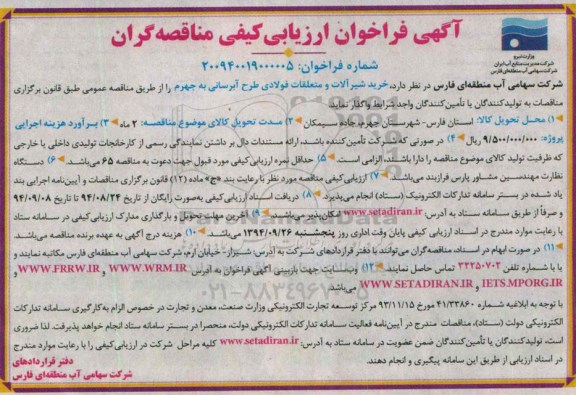 آگهی فراخوان ارزیابی‌کیفی مناقصه‌گران
شماره فراخوان: ۲۰۰۹۴۰۰۱۹۰۰۰۰۰۵
وزارت نیرو
شرکت مدیریت منابع آب ایران
شرکت سهامی آب منطقه‌ای فارس
شرکت سهامی آب منطقه‌ای فارس در نظر دارد، خرید شیرآلات و متعلقات فولادی طرح آبرسانی به جهرم را از طریق مناقصه عمومی طبق قانون برگزاری
مناقصات به تولیدکنندگان یا تأمین‌کنندگان واجد شرایط واگذار نماید
۱) محل تحویل کالا: استان فارس- شهرستان جهرم، جاده سیمکان ۲) مدت تحویل کالای موضوع مناقصه: ۲ ماه ۳) برآورد هزینه اجرایی
پروژه: ۹/۵۰۰/۰۰۰/۰۰۰ ریال ۴) در صورتی که شرکت تأمین کننده باشد، ارائه مستندات دال بر داشتن نمایندگی رسمی از کارخانجات تولیدی داخلی یا خارجی
که ظرفیت تولید کالای موضوع مناقصه را دارا باشند، الزامی است. ۵) حداقل نمره ارزیابی کیفی مورد قبول جهت دعوت به مناقصه ۶۵ می‌باشد. ۶) دستگاه
نظارت مهندسین مشاور پارس فرازبند می‌باشد. ۷) ارزیابی کیفی مناقصه مورد نظر با رعایت بند «ج» ماده (۱۲) قانون برگزاری مناقصات و آیین‌نامه اجرایی بند
یاد شده در بستر سامانه تدارکات الکترونیک (ستاد) انجام می‌پذیرد. ۸) دریافت اسناد ارزیابی کیفی به‌صورت رایگان از تاریخ ۹۴/۰۸/۲۴ تا تاریخ ۹۴/۰۹/۰۸
و صرفاً از طریق سامانه ستاد به آدرس: www.setadiran.ir امکان‌پذیر می‌باشد. ۹) آخرین مهلت تحویل و بارگذاری مدارک ارزیابی‌کیفی در سامانه ستاد
با رعایت موارد مندرج در اسناد ارزیابی کیفی پایان وقت اداری روز پنجشنبه ۱۳۹۴/۰۹/۲۶ می‌باشد. ۱۰) هزینه درج آگهی به عهده برنده مناقصه می‌باشد.
۱۱) در صورت ابهام در اسناد، مناقصه‌گران می‌توانند با دفتر قراردادهای شرکت به آدرس: شیراز- خیابان ارم، شرکت سهامی آب منطقه‌ای فارس مکاتبه نمایند و
یا با شماره تلفن ۳۲۲۵۰۷۰۲ تماس حاصل نمایند. ۱۲) وب‌سایت جهت بازبینی آگهی فراخوان به آدرس: WWW.WRM.IR و WWW.FRRW.IR و
IETS.MPORG.IR و WWW.SETADIRAN.IR می‌باشد.
با توجه به ابلاغیه شماره ۴۱/۳۳۸۶۰ مورخ ۹۳/۱۱/۱۵ مرکز توسعه تجارت الکترونیکی وزارت صنعت، معدن و تجارت در خصوص الزام به‌کارگیری سامانه تدارکات
الکترونیکی دولت (ستاد)، مناقصات مندرج در آیین‌نامه فعالیت سامانه تدارکات الکترونیکی دولت، منحصرا در بستر سامانه ستاد انجام خواهد پذیرفت. لذا ضروری
است، تولیدکنندگان یا تأمین‌کنندگان ضمن عضویت در سامانه ستاد به آدرس: www.setadiran.ir کلیه مراحل شرکت در ارزیابی‌کیفی را با رعایت موارد مندرج
در اسناد ارزیابی از طریق این سامانه پیگیری و انجام دهند.
دفتر قراردادهای
شرکت سهامی آب منطقه‌ای فارس
۰۲۱-۸۸۳۴۹۶۷۰-۵